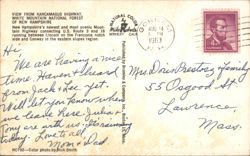 VIEW FROM KANCAMAGUS HIGHWAY,
WHITE MOUNTAIN NATIONAL FOREST
OF NEW HAMPSHIRE
New Hampshire's newest and most scenic Mountain Highway connecting U.S. Route 3 and 16
running between Lincoln on the Franconia Notch
side and Conway in the eastern slopes region.
Hi,
We are having a nice
time. Haven't heard
from Jack & Lee yet.
Will let you know when
we leave here. Julia &
Tony are with us
today. Love to all
Mom & Dad
1963
Mrs Doris Prestney & family
55 Osgood St
Lawrence,
Mass.
Color photo by Dick Smith